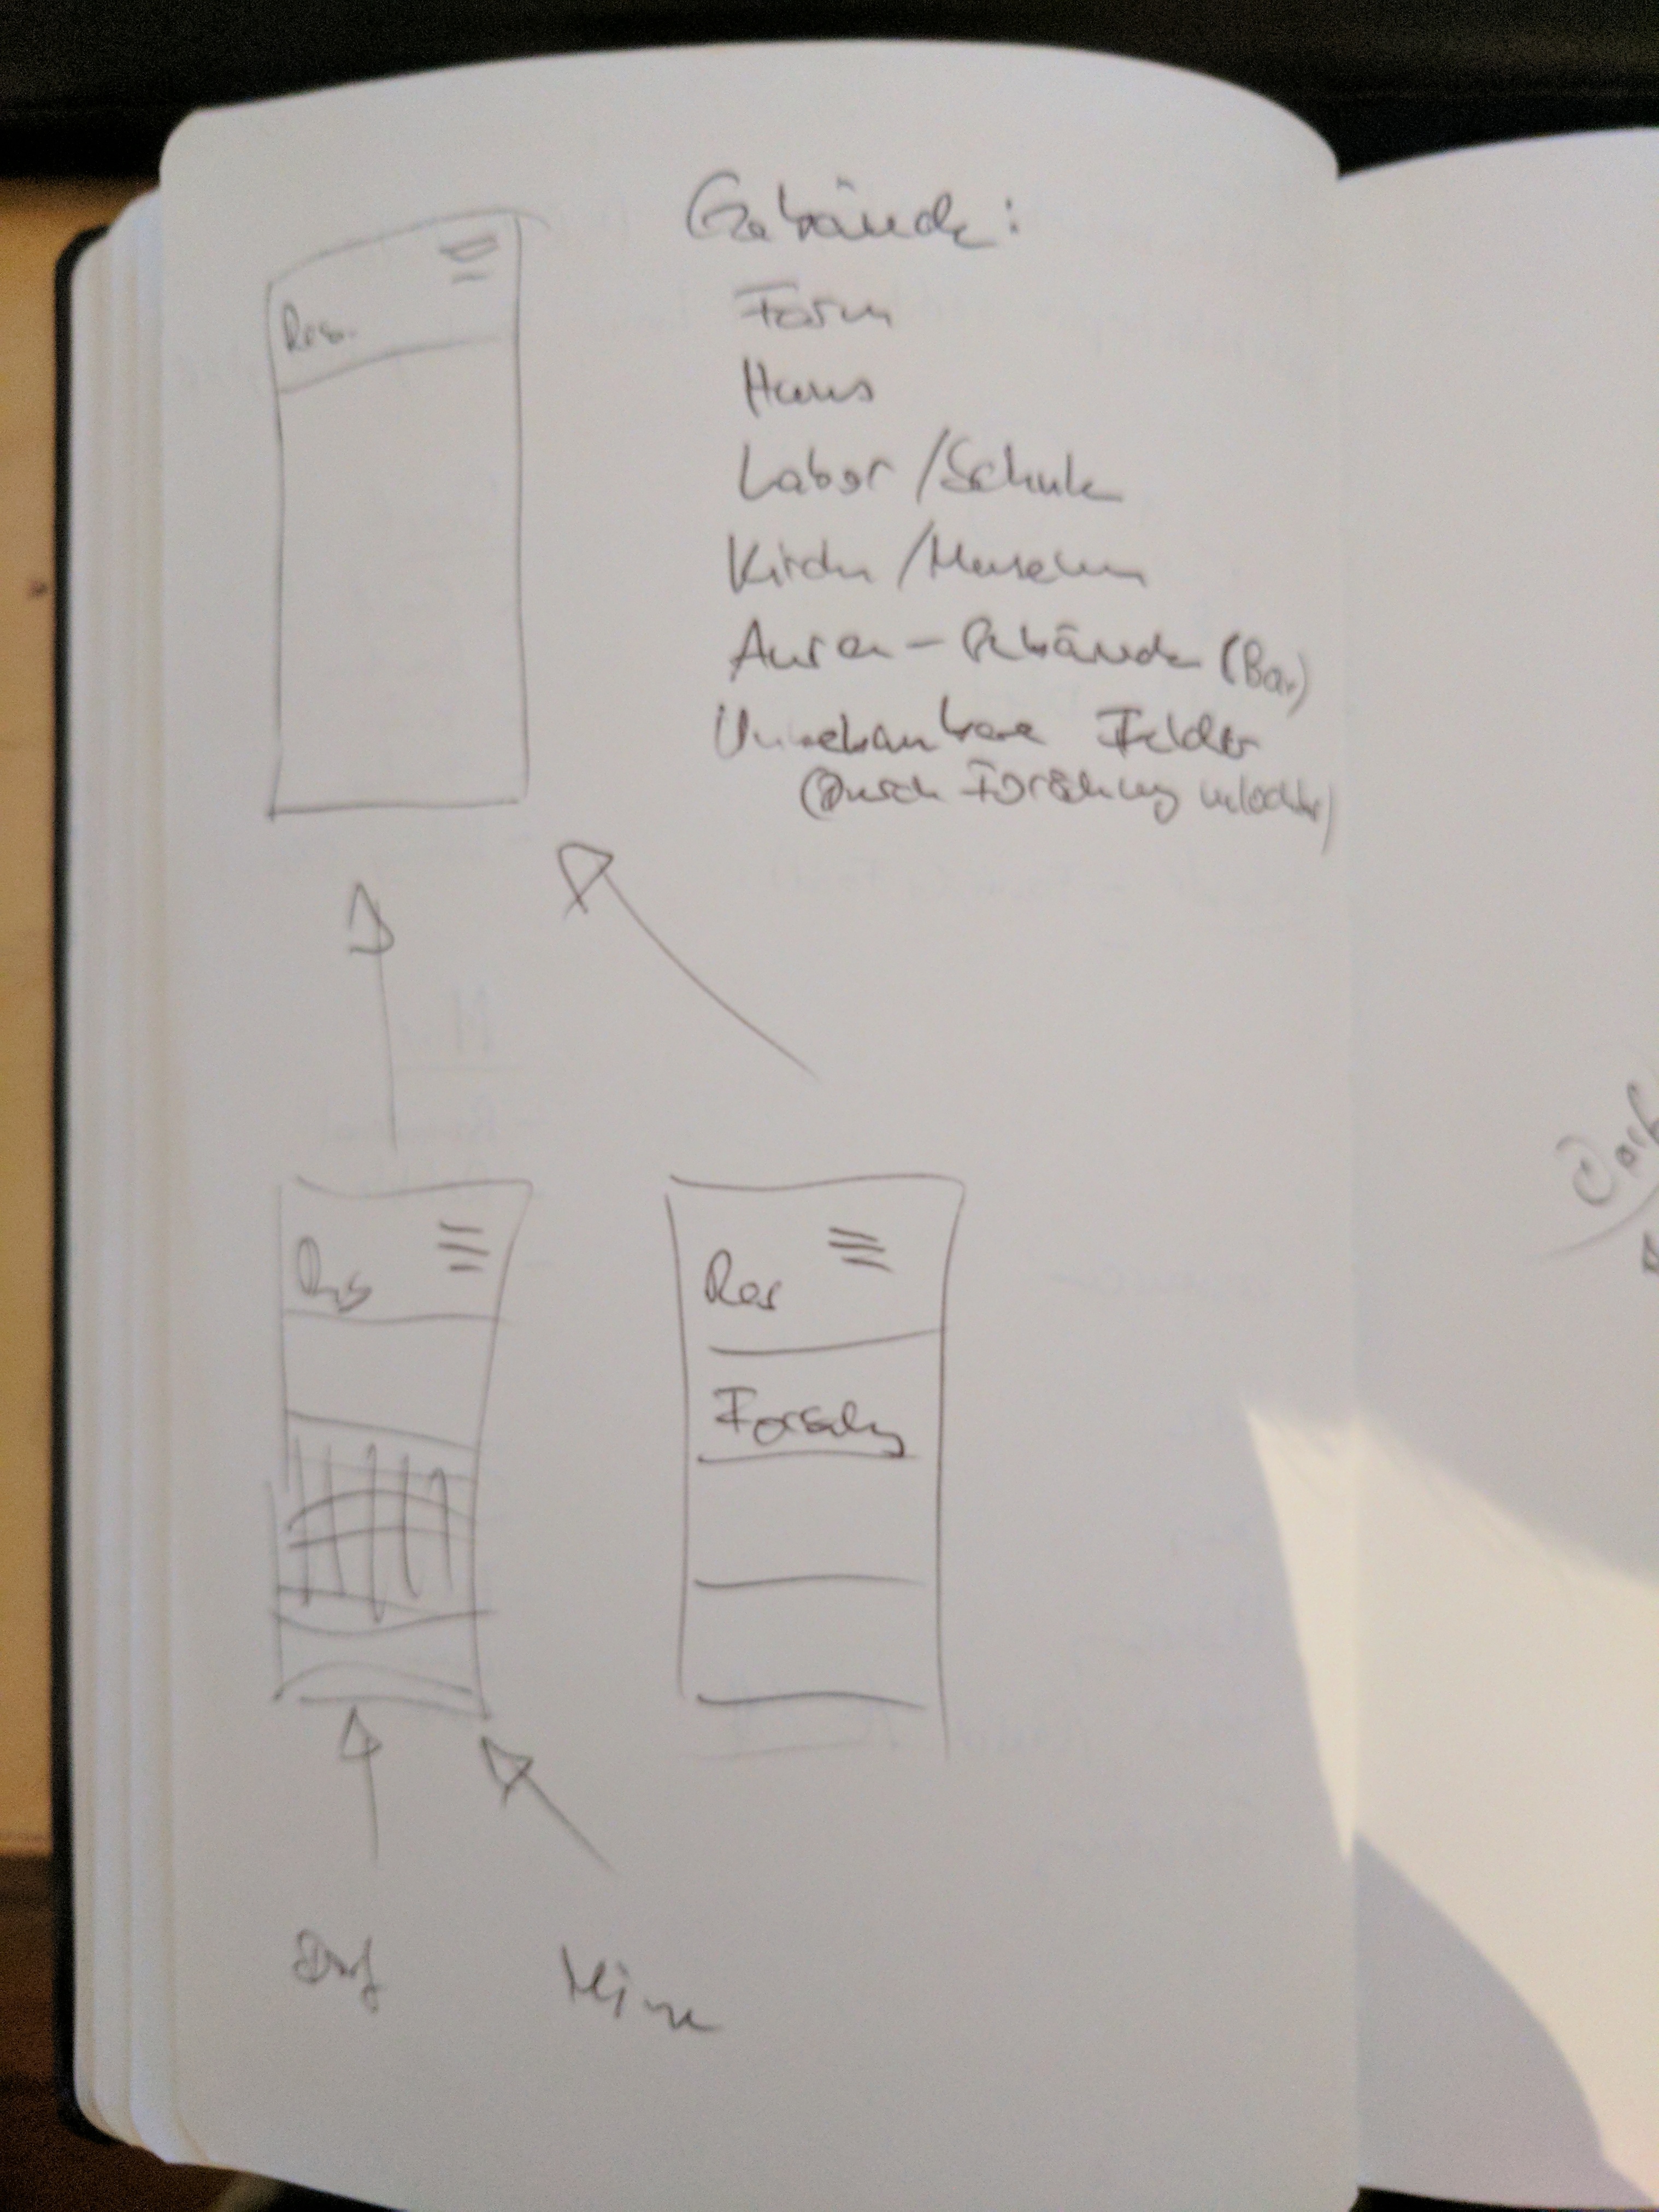 Gebäude:
Farm
Haus
Labor / Schule
Kirche / Museum
Auren-Gebäude (Bar)
Unbebaubare Felder
(Durch Forschung
Res.
Res
Res
Forschung
Dorf
Mine